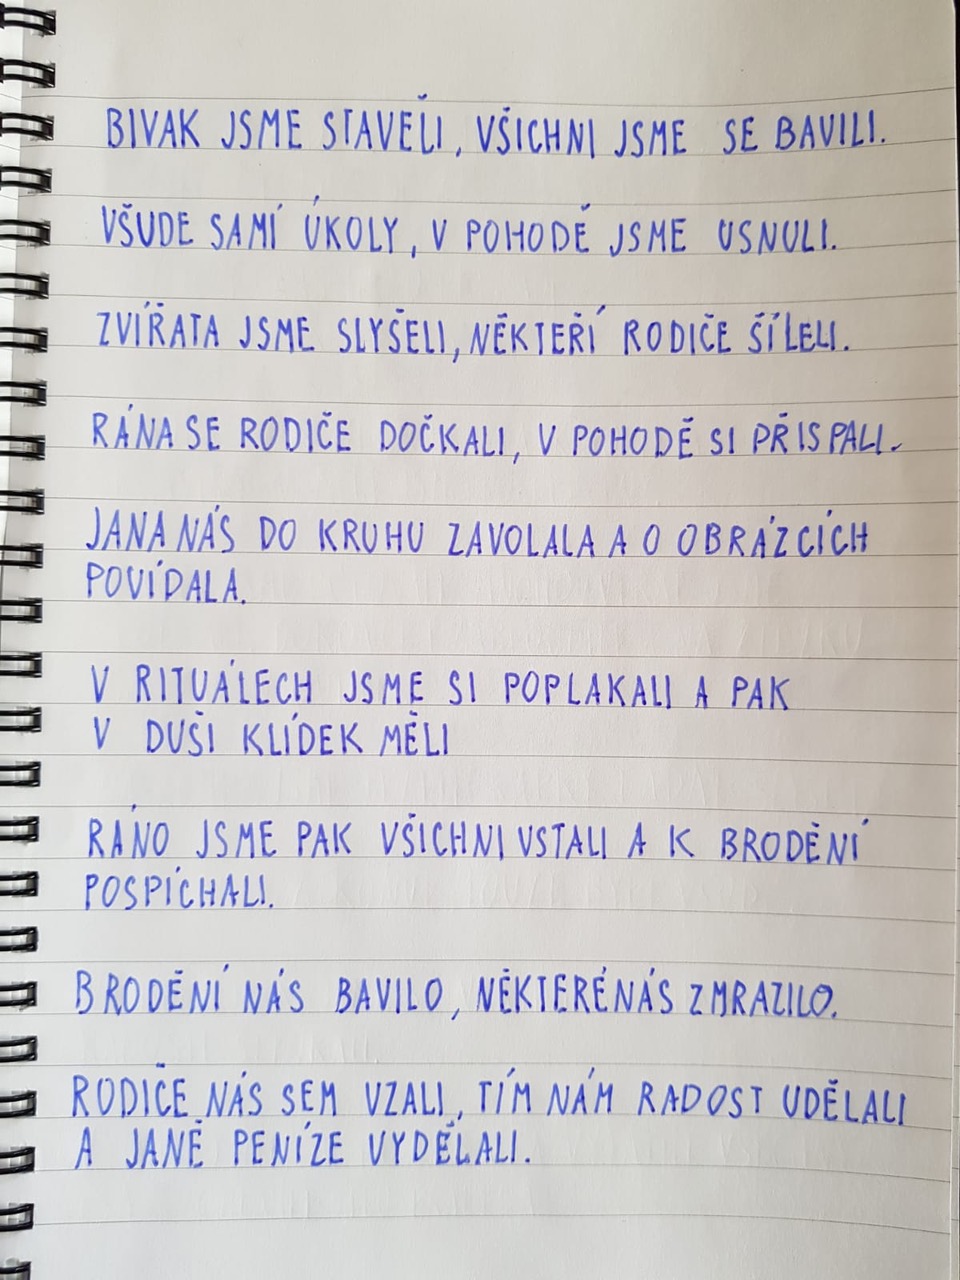 BIVAK JSME STAVĚLI, VŠICHNI JSME SE BAVILI.
VŠUDE SAMÍ ÚKOLY, V POHODĚ JSME USNULI.
ZVÍŘATA JSME SLYŠELI, NĚKTEŘÍ RODIČE ŠÍLELI.
RÁNA SE RODIČE DOČKALI, V POHODĚ SI PŘISPALI.
JANA NÁS DO KRUHU ZAVOLALA A O OBRÁZCÍCH
POVÍDALA.
V RITUÁLECH JSME SI POPLAKALI A PAK
V DUŠI KLÍDEK MĚLI
RÁNO JSME PAK VŠICHNI VSTALI A K BRODĚNÍ
POSPÍCHALI.
BRODĚNÍ NÁS BAVILO, NĚKTERÉ NÁS ZMRAZILO.
RODIČE NÁS SEM VZALI, TÍM NÁM RADOST UDĚLALI
A JANĚ PENÍZE VYDĚLALI.